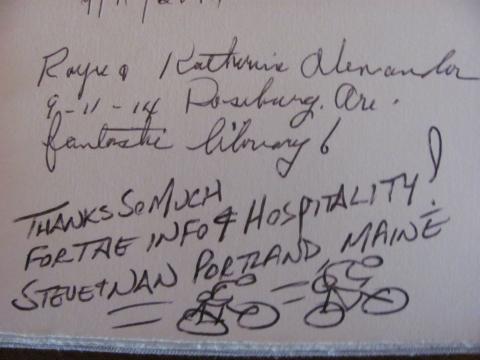 Katherine Alexander
9-11-14 Roseburg. Ore.
fantastic library!
THANKS SO MUCH
FOR THE INFO & HOSPITALITY!
STEVE & NAN PORTLAND, MAINE